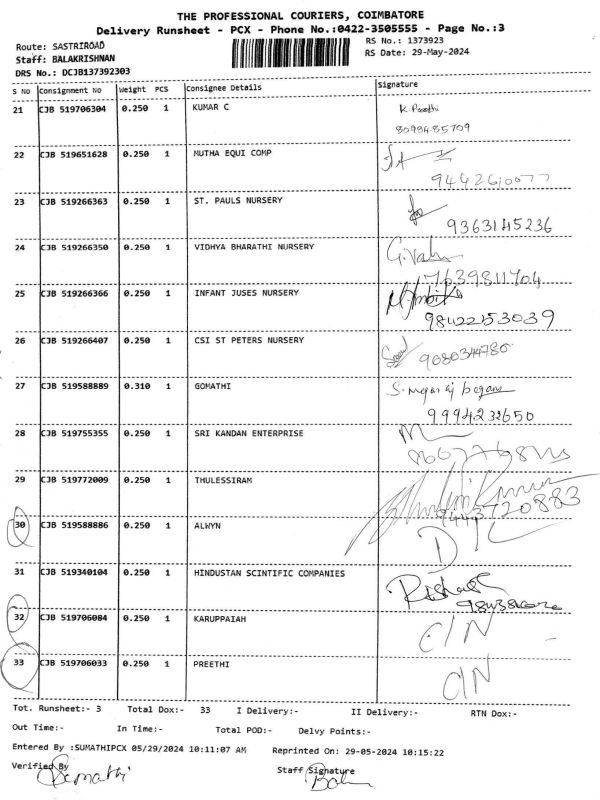 THE PROFESSIONAL COURIERS, COIMBATORE
Delivery Runsheet - PCX - Phone No.:0422-3505555 - Page No.:3
Route: SASTRIROAD
RS No.: 1373923
Staff: BALAKRISHNAN
RS Date: 29-May-2024
DRS No.: DCJB137392303
S No Consignment No Weight PCS Consignee Details Signature
21 CJB 519706304 0.250 1 KUMAR C
8098485709
22 CJB 519651628 0.250 1 MUTHA EQUI COMP
9442610077
23 CJB 519266363 0.250 1 ST. PAULS NURSERY
9363145236
24 CJB 519266350 0.250 1 VIDHYA BHARATHI NURSERY
7639811704
25 CJB 519266366 0.250 1 INFANT JUSES NURSERY
9842253039
26 CJB 519266407 0.250 1 CSI ST PETERS NURSERY
9080344780
27 CJB 519588889 0.310 1 GOMATHI
9994232650
28 CJB 519755355 0.250 1 SRI KANDAN ENTERPRISE
29 CJB 519772009 0.250 1 THULESSIRAM
9443720883
30 CJB 519588886 0.250 1 ALWYN
D/L
31 CJB 519340104 0.250 1 HINDUSTAN SCINTIFIC COMPANIES
32 CJB 519706084 0.250 1 KARUPPAIAH
C/N
33 CJB 519706033 0.250 1 PREETHI
C/N
Tot. Runsheet:- 3 Total Dox:- 33 I Delivery:- II Delivery:- RTN Dox:-
Out Time:- In Time:- Total POD:- Delvy Points:-
Entered By :SUMATHIPCX 05/29/2024 10:11:07 AM Reprinted On: 29-05-2024 10:15:22
Verified By Staff Signature
Sumathi